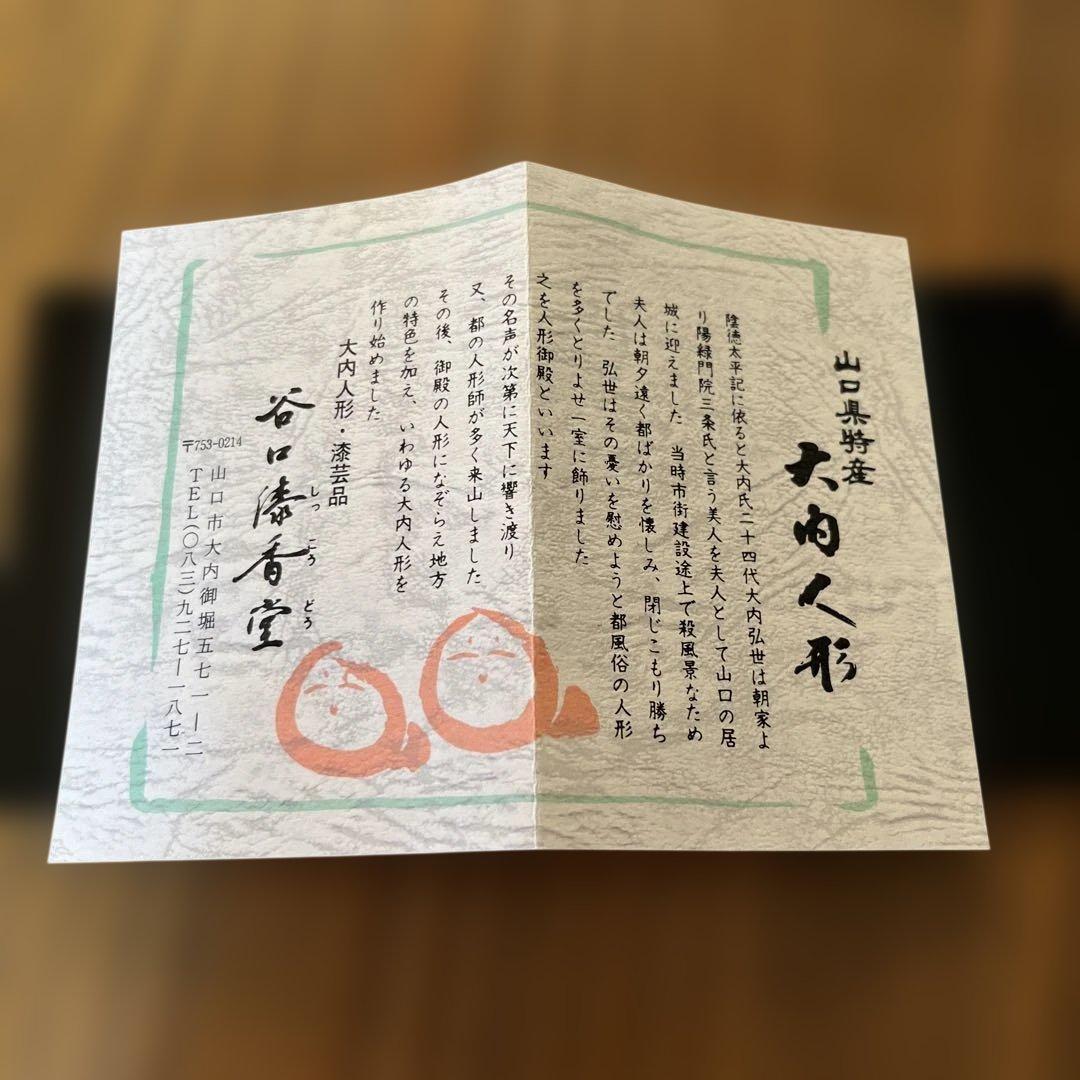 山口県特産
大内人形
陰徳太平記に依ると大内氏二十四代大内弘世は朝家よ
り陽緑門院三条氏と言う美人を夫人として山口の居
城に迎えました 当時市街建設途上で殺風景なため
夫人は朝夕遠く都ばかりを懐しみ、閉じこもり勝ち
でした 弘世はその憂いを慰めようと都風俗の人形
を多くとりよせ一室に飾りました
之を人形御殿といいます
その名声が次第に天下に響き渡り
又、都の人形師が多く来山しました
その後、御殿の人形になぞらえ地方
の特色を加え、いわゆる大内人形を
作り始めました
大内人形・漆芸品
谷口漆香堂
しっこうどう
〒753-0214
山口市大内御堀五七一ー二
TEL(〇八三)九二七ー一八七一